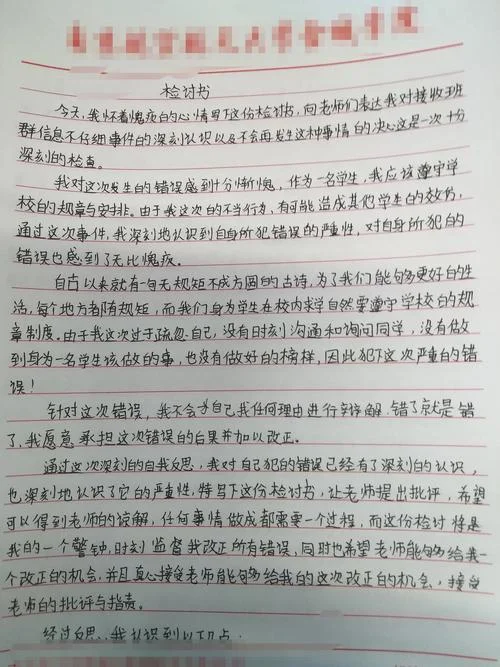 检讨书
今天,我怀着愧疚的心情写下这份检讨书,向老师们表达我对接收班
群信息不仔细事件的深刻认识以及不会再发生这种事情的决心这是一次十分
深刻的检查。
我对这次发生的错误感到十分惭愧,作为一名学生,我应该遵守学
校的规章与安排。由于我这次的不当行为,有可能造成其他学生的效仿,
通过这次事件,我深刻地认识到自身所犯错误的严重性,对自身所犯的
错误也感到了无比愧疚。
自古以来就有一句无规矩不成方圆的古诗,为了我们能够更好的生
活,每个地方都有规矩,而我们身为学生在校内求学自然要遵守学校的规
章制度。由于我这次过于疏忽自己,没有时刻沟通和询问同学,没有做
到身为一名学生该做的事,也没有做好的榜样,因此犯下这次严重的错
误!
针对这次错误,我不会为自己找任何理由进行辩解,错了就是错
了,我愿意承担这次错误的后果并加以改正。
通过这次深刻的自我反思,我对自己犯的错误已经有了深刻的认识,
也深刻地认识了它的严重性,特写下这份检讨书,让老师提出批评,希望
可以得到老师的谅解,任何事情做成都需要一个过程,而这份检讨将是
我的一个警钟,时刻监督我改正所有错误,同时也希望老师能够给我一
个改正的机会,并且真心接受老师能够给我的这次改正的机会,接受
老师的批评与指责。
经过反思,我认识到以下几点